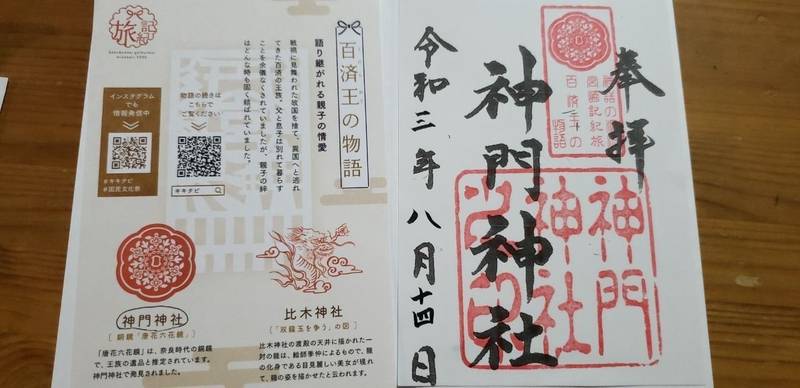 記紀旅
百済王の物語
語り継がれる親子の情愛
戦禍に見舞われた故国を捨て、異国へと逃れ
てきた百済の王族。父と息子は別れて暮らす
ことを余儀なくされていましたが、親子の絆
はどんな時も固く結ばれていました。
物語の続きは
こちらで
ご覧ください
キキタビ
インスタグラム
でも
情報発信中
#キキタビ
#国民文化祭
神門神社
[銅鏡「唐花六花鏡」]
「唐花六花鏡」は、奈良時代の銅鏡
で、王族の遺品と推定されています。
神門神社で発見されました。
比木神社
[「双龍玉を争う」の図]
比木神社の渡殿の天井に描かれた一
対の龍は、絵師季仲によるもので、龍
の化身である目見麗しい美女が現れ
て、龍の姿を描かせたと云われます。
奉拝
百済王の
物語
神門神社
神門
神社
令和三年八月十四日